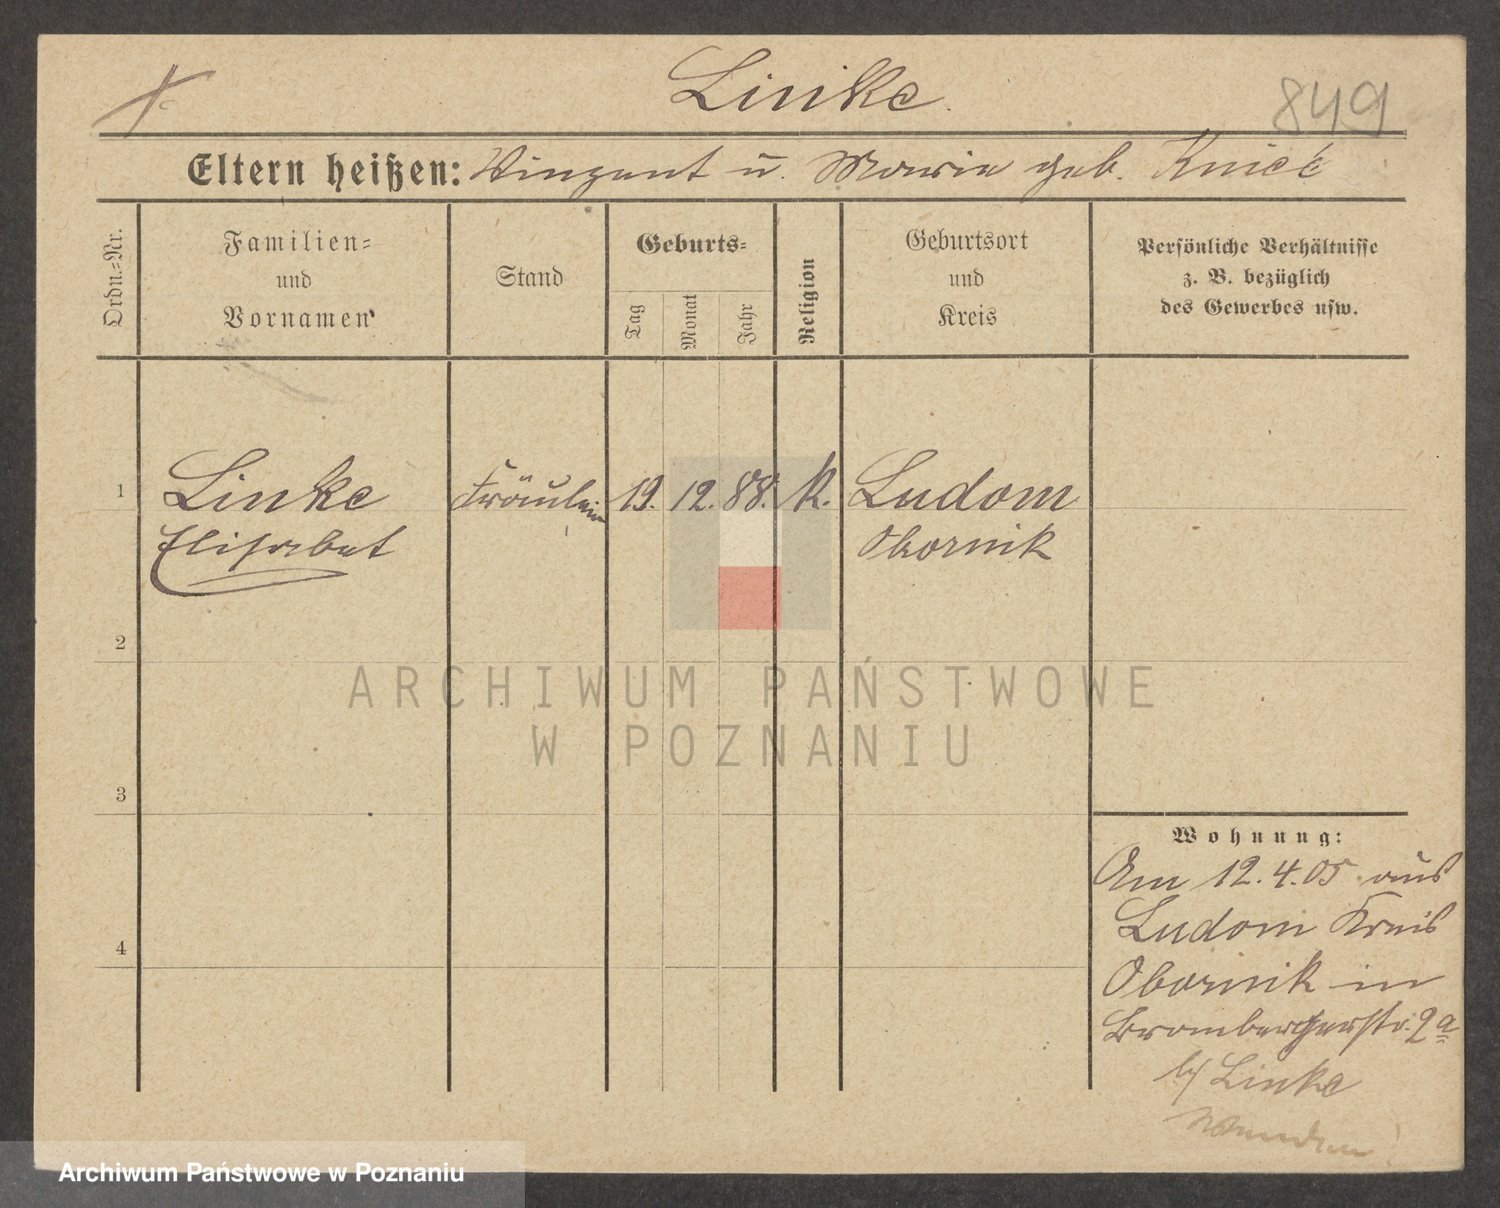 Linke.
849
Eltern heißen: Vinzent u. Maria geb. Knick
Ordn.-Nr.
Familien-
und
Vornamen
Stand
Geburts-
Tag
Monat
Jahr
Religion
Geburtsort
und
Kreis
Persönliche Verhältnisse
z. B. bezüglich
des Gewerbes usw.
1 Linke Fräulein 19. 12. 88. K. Ludom
Elisabet Obornik
2
ARCHIWUM PAŃSTWOWE
W POZNANIU
3
Wohnung:
Am 12.4.05 aus
Ludom Kreis
4
Obornik in
Brombergerstr. 2a
b/ Linke
Archiwum Państwowe w Poznaniu